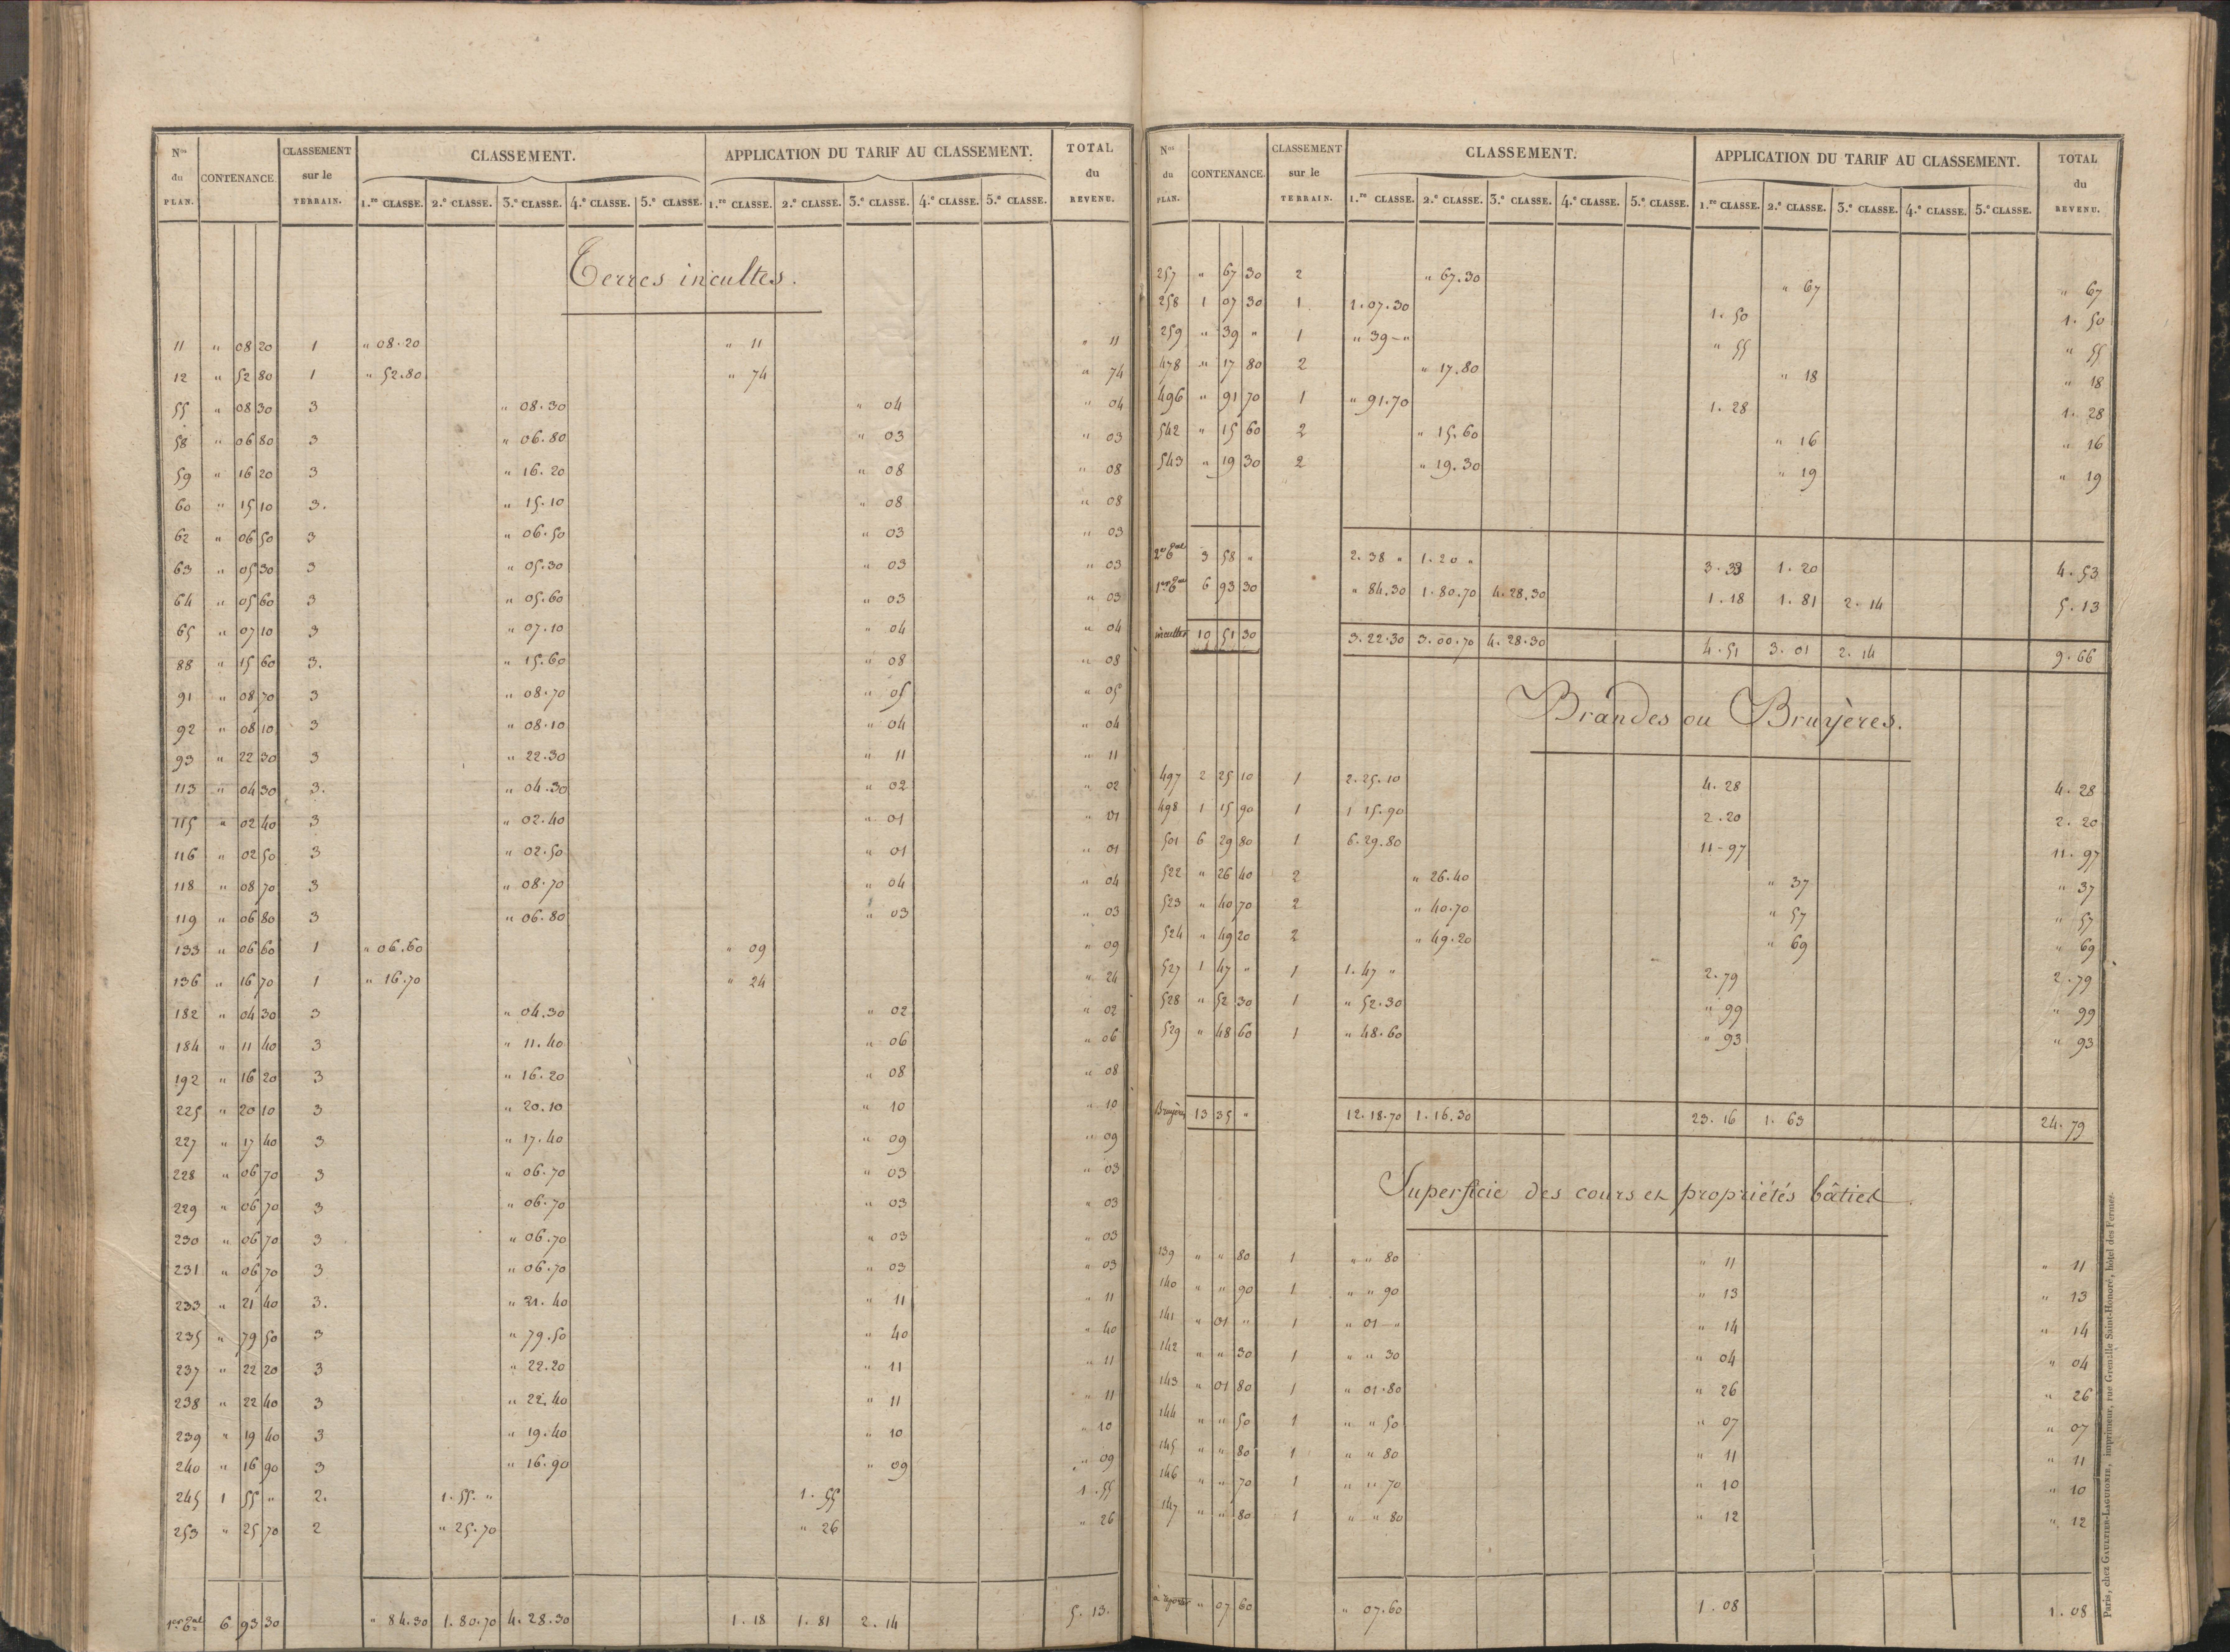 Nos du PLAN. CONTENANCE. CLASSEMENT sur le TERRAIN. CLASSEMENT. APPLICATION DU TARIF AU CLASSEMENT. TOTAL du REVENU.
1.re CLASSE. 2.e CLASSE. 3.e CLASSE. 4.e CLASSE. 5.e CLASSE. 1.re CLASSE. 2.e CLASSE. 3.e CLASSE. 4.e CLASSE. 5.e CLASSE.
Terres incultes.
11 " 08 20 1 " 08.20 " 11 " 11
12 " 52 80 1 " 52.80 " 74 " 74
55 " 08 30 3 " 08.30 " 04 " 04
58 " 06 80 3 " 06.80 " 03 " 03
59 " 16 20 3 " 16.20 " 08 " 08
60 " 15 10 3. " 15.10 " 08 " 08
62 " 06 50 3 " 06.50 " 03 " 03
63 " 05 30 3 " 05.30 " 03 " 03
64 " 05 60 3 " 05.60 " 03 " 03
65 " 07 10 3 " 07.10 " 04 " 04
88 " 15 60 3. " 15.60 " 08 " 08
91 " 08 70 3 " 08.70 " 05 " 05
92 " 08 10 3 " 08.10 " 04 " 04
93 " 22 30 3 " 22.30 " 11 " 11
113 " 04 30 3. " 04.30 " 02 " 02
115 " 02 40 3 " 02.40 " 01 " 01
116 " 02 50 3 " 02.50 " 01 " 01
118 " 08 70 3 " 08.70 " 04 " 04
119 " 06 80 3 " 06.80 " 03 " 03
133 " 06 60 1 " 06.60 " 09 " 09
136 " 16 70 1 " 16.70 " 24 " 24
182 " 04 30 3 " 04.30 " 02 " 02
184 " 11 40 3 " 11.40 " 06 " 06
192 " 16 20 3 " 16.20 " 08 " 08
225 " 20 10 3 " 20.10 " 10 " 10
227 " 17 40 3 " 17.40 " 09 " 09
228 " 06 70 3 " 06.70 " 03 " 03
229 " 06 70 3 " 06.70 " 03 " 03
230 " 06 70 3 " 06.70 " 03 " 03
231 " 06 70 3 " 06.70 " 03 " 03
233 " 21 40 3. " 21.40 " 11 " 11
235 " 79 50 3 " 79.50 " 40 " 40
237 " 22 20 3 " 22.20 " 11 " 11
238 " 22 40 3 " 22.40 " 11 " 11
239 " 19 40 3 " 19.40 " 10 " 10
240 " 16 90 3 " 16.90 " 09 " 09
245 1 55 " 2. 1.55. " 1.55 1.55
253 " 25 70 2 " 25.70 " 26 " 26
6 93 30 " 84.30 1.80.70 4.28.30 1.18 1.81 2.14 5.13.
Nos du PLAN. CONTENANCE. CLASSEMENT sur le TERRAIN. CLASSEMENT. APPLICATION DU TARIF AU CLASSEMENT. TOTAL du REVENU.
1.re CLASSE. 2.e CLASSE. 3.e CLASSE. 4.e CLASSE. 5.e CLASSE. 1.re CLASSE. 2.e CLASSE. 3.e CLASSE. 4.e CLASSE. 5.e CLASSE.
257 " 67 30 2 " 67.30 " 67 " 67
258 1 07 30 1 1.07.30 1.50 1.50
259 " 39 " 1 " 39 - " " 55 " 55
478 " 17 80 2 " 17.80 " 18 " 18
496 " 91 70 1 " 91.70 1.28 1.28
542 " 15 60 2 " 15.60 " 16 " 16
543 " 19 30 2 " 19.30 " 19 " 19
3 58 " 2.38 " 1.20 " 3.33 1.20 4.53
6 93 30 " 84.30 1.80.70 4.28.30 1.18 1.81 2.14 5.13
incultes 10 51 30 3.22.30 3.00.70 4.28.30 4.51 3.01 2.14 9.66
Brandes ou Bruyères.
497 2 25 10 1 2.25.10 4.28 4.28
498 1 15 90 1 1 15.90 2.20 2.20
501 6 29 80 1 6.29.80 11-97 11.97
522 " 26 40 2 " 26.40 " 37 " 37
523 " 40 70 2 " 40.70 " 57 " 57
524 " 49 20 2 " 49.20 " 69 " 69
527 1 47 " 1 1.47 " 2.79 2.79
528 " 52 30 1 " 52.30 " 99 " 99
529 " 48 60 1 " 48.60 " 93 " 93
Bruyères 13 35 " 12.18.70 1.16.30 23.16 1.63 24.79
Superficie des cours et propriétés bâties.
139 " " 80 1 " " 80 " 11 " 11
140 " " 90 1 " " 90 " 13 " 13
141 " 01 " 1 " 01 - " " 14 " 14
142 " " 30 1 " " 30 " 04 " 04
143 " 01 80 1 " 01.80 " 26 " 26
144 " " 50 1 " " 50 " 07 " 07
145 " " 80 1 " " 80 " 11 " 11
146 " " 70 1 " " 70 " 10 " 10
147 " " 80 1 " " 80 " 12 " 12
" 07 60 " 07.60 1.08 1.08
Paris, chez GAUTIER-LAGUIONIE, imprimeur, rue Grenelle Saint-Honoré, hôtel des Fermes.